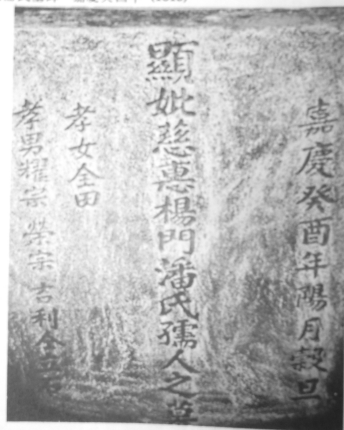 嘉慶癸酉年陽月穀旦
顯妣慈惠楊門潘氏孺人之墓
孝女全田
孝男耀宗 榮宗吉利全立石